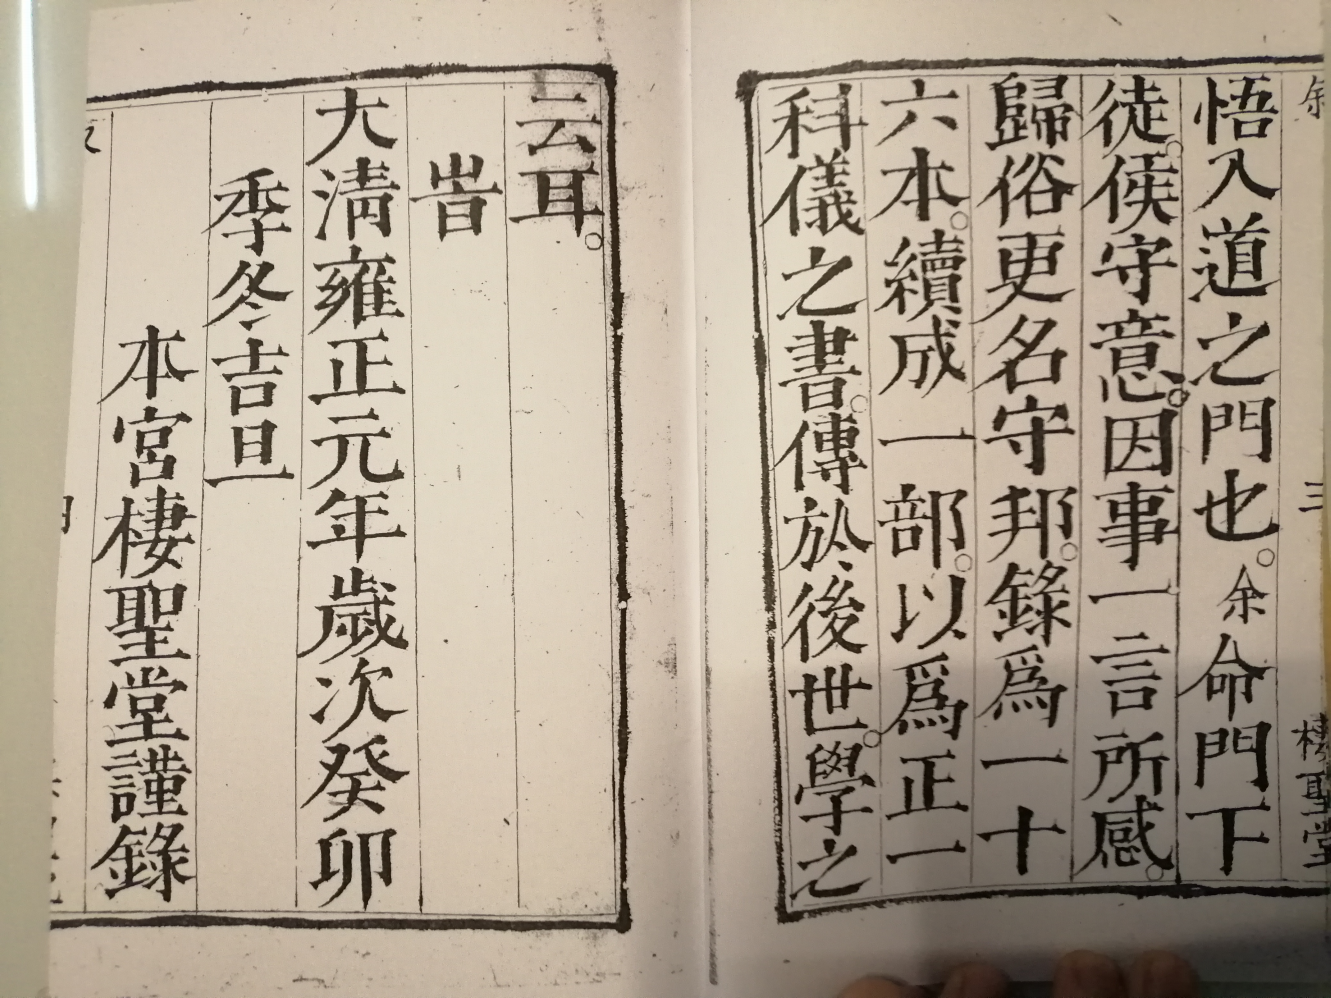 悟入道之門也。余命門下
徒。侯守意。因事一言所感。
歸俗更名守邦。錄爲一十
六本。續成一部。以爲正一
科儀之書。傳於後世。學之
三
棲聖堂
云耳。
旹
大淸雍正元年歲次癸卯
季冬吉旦
本宮棲聖堂謹錄